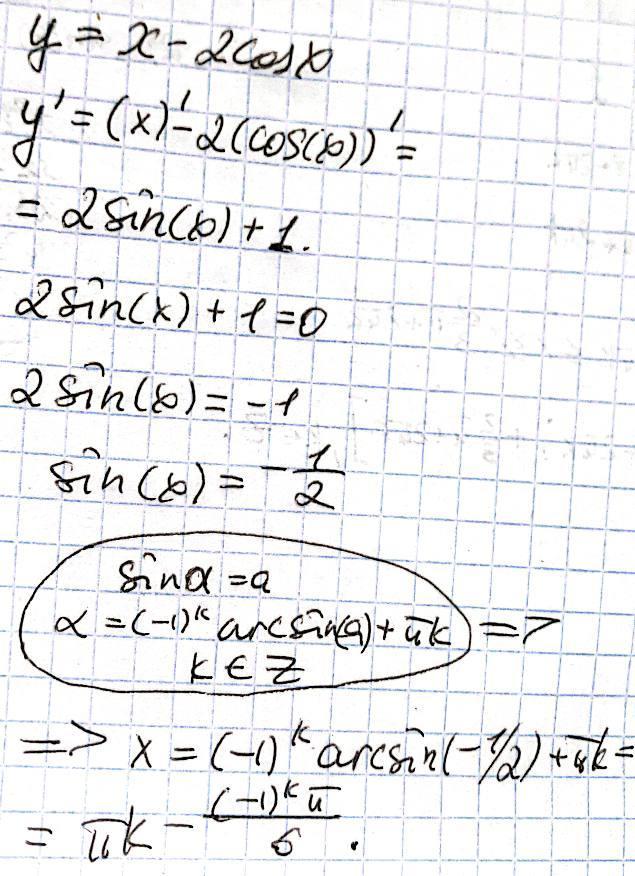 y = x - 2cosx
y' = (x)' - 2(cos(x))' =
= 2sin(x) + 1.
2sin(x) + 1 = 0
2sin(x) = -1
sin(x) = -1/2
sinα = a
α = (-1)^k arcsin(a) + πk =>
k ∈ Z
=> x = (-1)^k arcsin(-1/2) + πk =
= πk - (-1)^k π/6.